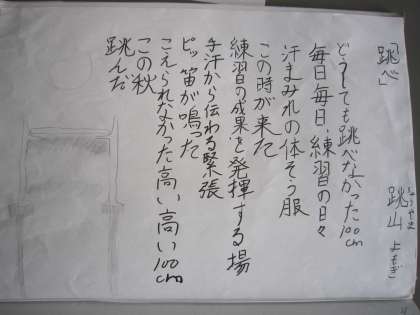 「跳べ」
跳山 よもぎ
どうしても跳べなかった100cm
毎日毎日、練習の日々
汗まみれの体そう服
この時が来た
練習の成果を発揮する場
手汗から伝わる緊張
ピッ笛が鳴った
こえられなかった高い、高い100cm
この秋
跳んだ